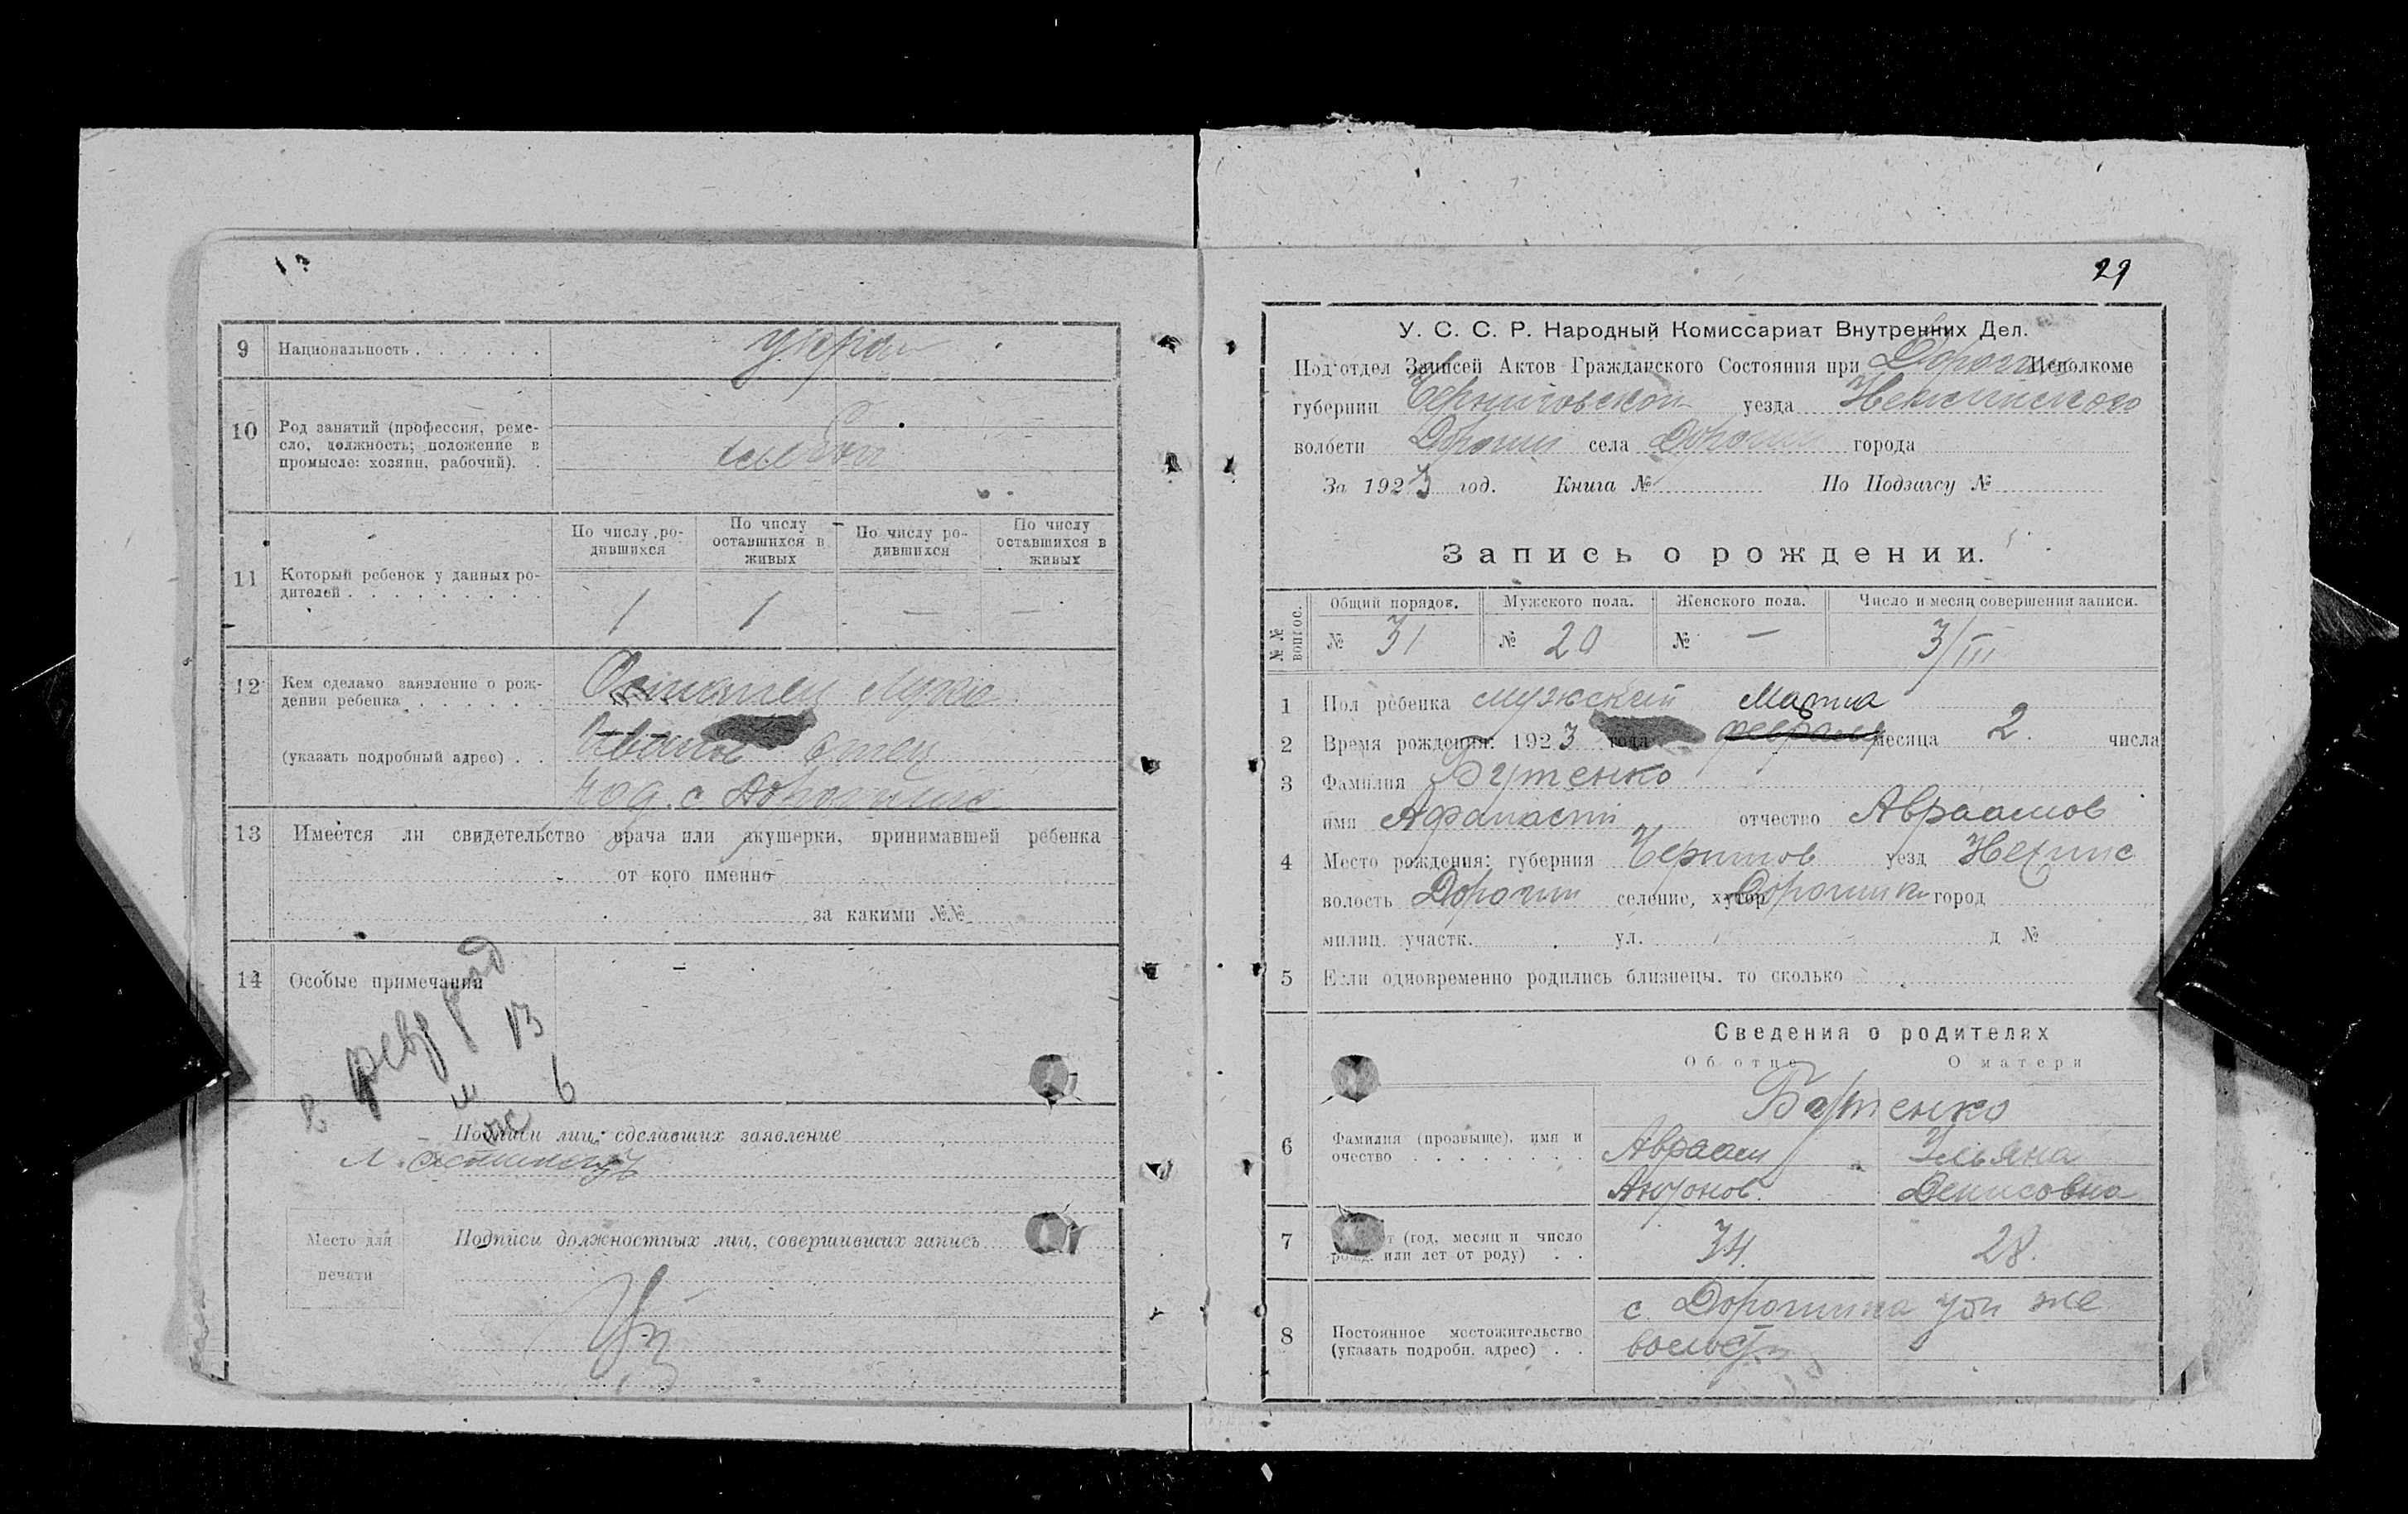 9 Национальность . . . . . . . укра
10 Род занятий (профессия, реме-
сло, должность; положение в
промысле: хозяин, рабочий). .
11 Который ребенок у данных ро-
дителей . . . . . . . . .
По числу ро-
дившихся
По числу
оставшихся в
живых
По числу ро-
дившихся
По числу
оставшихся в
живых
1 1 — —
12 Кем сделано заявление о рож-
дении ребенка . . . . . .
(указать подробный адрес) . .
отец
13 Имеется ли свидетельство врача или акушерки, принимавшей ребенка
от кого именно
за какими №№
14 Особые примечания
в февр
м 13
ж 6
Подписи лиц, сделавших заявление
Место для
печати
Подписи должностных лиц, совершивших запись
29
У. С. С. Р. Народный Комиссариат Внутренних Дел.
Под'отдел Записей Актов Гражданского Состояния при Дорогин Исполкоме
губернии Черниговской уезда Нежинского
волости Дорогин села Дорогин города
За 1923 год. Книга № По Подзагсу №
Запись о рождении.
№№ вопрос.
Общий порядок. Мужского пола. Женского пола. Число и месяц совершения записи.
№ 31 № 20 № — 3/III
1 Пол ребенка мужский Марта
2 Время рождения: 1923 года февраля месяца 2. числа
3 Фамилия Бутенко
имя Афанасий отчество Авраамов
4 Место рождения: губерния Чернигов уезд Нежинс
волость Дорогин селение, хутор Дорогинка город
милиц. участк. ул. д №
5 Если одновременно родились близнецы, то сколько
Сведения о родителях
Об отце О матери
Бутенко
6 Фамилия (прозвыще), имя и
очество . . . . . . . .
Авраам Ульяна
Антонов. Денисовна
7 (год, месяц и число
рожд. или лет от роду) . .
34. 28.
8 Постоянное местожительство
(указать подробн. адрес) . .
с. Дорогинка той же
волости